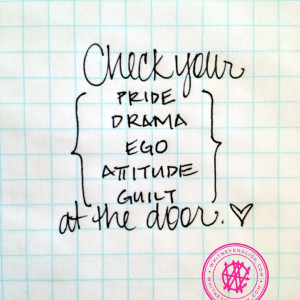 Check your
PRIDE
DRAMA
EGO
ATTITUDE
GUILT
at the door.
WHITNEYENGLISH.COM